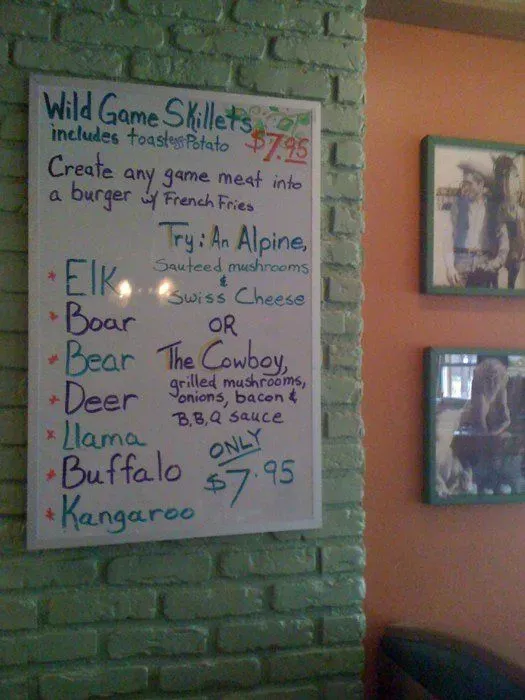 Wild Game Skillets
includes toast & Potato $7.95
Create any game meat into
a burger w/ French Fries
Try: An Alpine,
Sauteed mushrooms
&
Swiss Cheese
OR
The Cowboy,
grilled mushrooms,
onions, bacon &
B,B,Q sauce
ONLY
$7.95
* Elk
* Boar
* Bear
* Deer
* Llama
* Buffalo
* Kangaroo